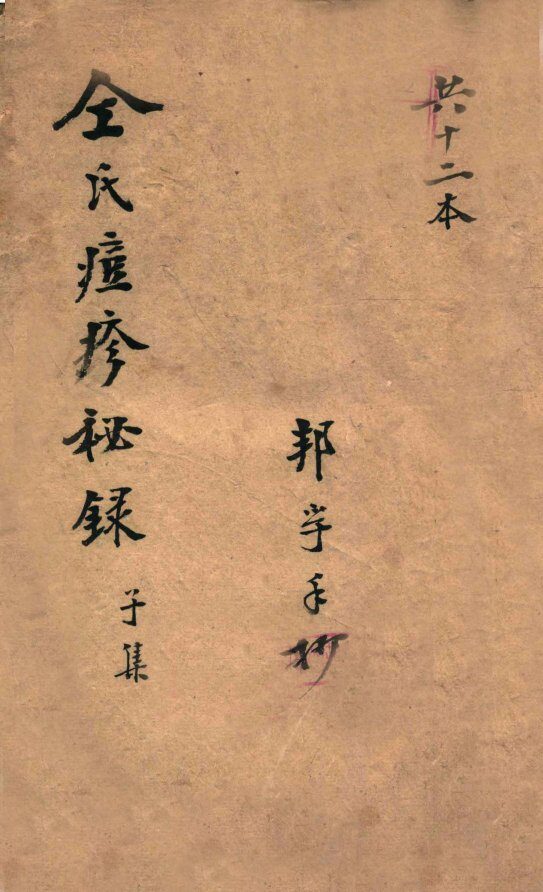 共十二本
邦孚手抄
仝氏痘疹秘录
子集